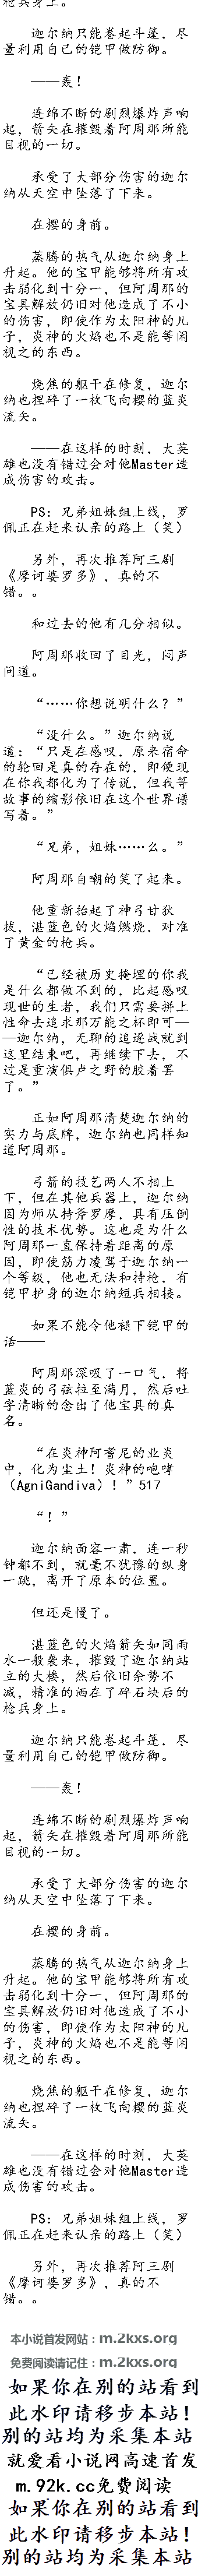 枪兵身上。
迦尔纳只能卷起斗篷，尽
量利用自己的铠甲做防御。
——轰！
连绵不断的剧烈爆炸声响
起，箭矢在摧毁着阿周那所能
目视的一切。
承受了大部分伤害的迦尔
纳从天空中坠落了下来。
在樱的身前。
蒸腾的热气从迦尔纳身上
升起。他的宝甲能够将所有攻
击弱化到十分一，但阿周那的
宝具解放仍旧对他造成了不小
的伤害，即使作为太阳神的儿
子，炎神的火焰也不是能等闲
视之的东西。
烧焦的躯干在修复，迦尔
纳也捏碎了一枚飞向樱的蓝炎
流矢。
——在这样的时刻，大英
雄也没有错过会对他Master造
成伤害的攻击。
PS：兄弟姐妹组上线，罗
佩正在赶来认亲的路上（笑）
另外，再次推荐阿三剧
《摩诃婆罗多》，真的不
错。。
和过去的他有几分相似。
阿周那收回了目光，闷声
问道。
“……你想说明什么？”
“没什么。”迦尔纳说
道：“只是在感叹，原来宿命
的轮回是真的存在的，即便现
在你我都化为了传说，但我等
故事的缩影依旧在这个世界谱
写着。”
“兄弟，姐妹……么。”
阿周那自嘲的笑了起来。
他重新抬起了神弓甘狄
拔，湛蓝色的火焰燃烧，对准
了黄金的枪兵。
“已经被历史掩埋的你我
是什么都做不到的，比起感叹
现世的生者，我们只需要拼上
性命去追求那万能之杯即可—
—迦尔纳，无聊的追逐战就到
这里结束吧，再继续下去，不
过是重演俱卢之野的胶着罢
了。”
正如阿周那清楚迦尔纳的
实力与底牌，迦尔纳也同样知
道阿周那。
弓箭的技艺两人不相上
下，但在其他兵器上，迦尔纳
因为师从持斧罗摩，具有压倒
性的技术优势。这也是为什么
阿周那一直保持着距离的原
因，即使筋力凌驾于迦尔纳一
个等级，他也无法和持枪，有
铠甲护身的迦尔纳短兵相接。
如果不能令他褪下铠甲的
话——
阿周那深吸了一口气，将
蓝炎的弓弦拉至满月，然后吐
字清晰的念出了他宝具的真
名。
“在炎神阿耆尼的业炎
中，化为尘土！炎神的咆哮
（AgniGandiva）！”517
“！”
迦尔纳面容一肃，连一秒
钟都不到，就毫不犹豫的纵身
一跳，离开了原本的位置。
但还是慢了。
湛蓝色的火焰箭矢如同雨
水一般袭来，摧毁了迦尔纳站
立的大楼，然后依旧余势不
减，精准的洒在了碎石块后的
枪兵身上。
迦尔纳只能卷起斗篷，尽
量利用自己的铠甲做防御。
——轰！
连绵不断的剧烈爆炸声响
起，箭矢在摧毁着阿周那所能
目视的一切。
承受了大部分伤害的迦尔
纳从天空中坠落了下来。
在樱的身前。
蒸腾的热气从迦尔纳身上
升起。他的宝甲能够将所有攻
击弱化到十分一，但阿周那的
宝具解放仍旧对他造成了不小
的伤害，即使作为太阳神的儿
子，炎神的火焰也不是能等闲
视之的东西。
烧焦的躯干在修复，迦尔
纳也捏碎了一枚飞向樱的蓝炎
流矢。
——在这样的时刻，大英
雄也没有错过会对他Master造
成伤害的攻击。
PS：兄弟姐妹组上线，罗
佩正在赶来认亲的路上（笑）
另外，再次推荐阿三剧
《摩诃婆罗多》，真的不
错。。
本小说首发网站：m.2kxs.org
免费阅读请记住：m.2kxs.org
如果你在别的站看到
此水印请移步本站！
别的站均为采集本站
就爱看小说网高速首发
m.92k.cc免费阅读
如果你在别的站看到
此水印请移步本站！
别的站均为采集本站